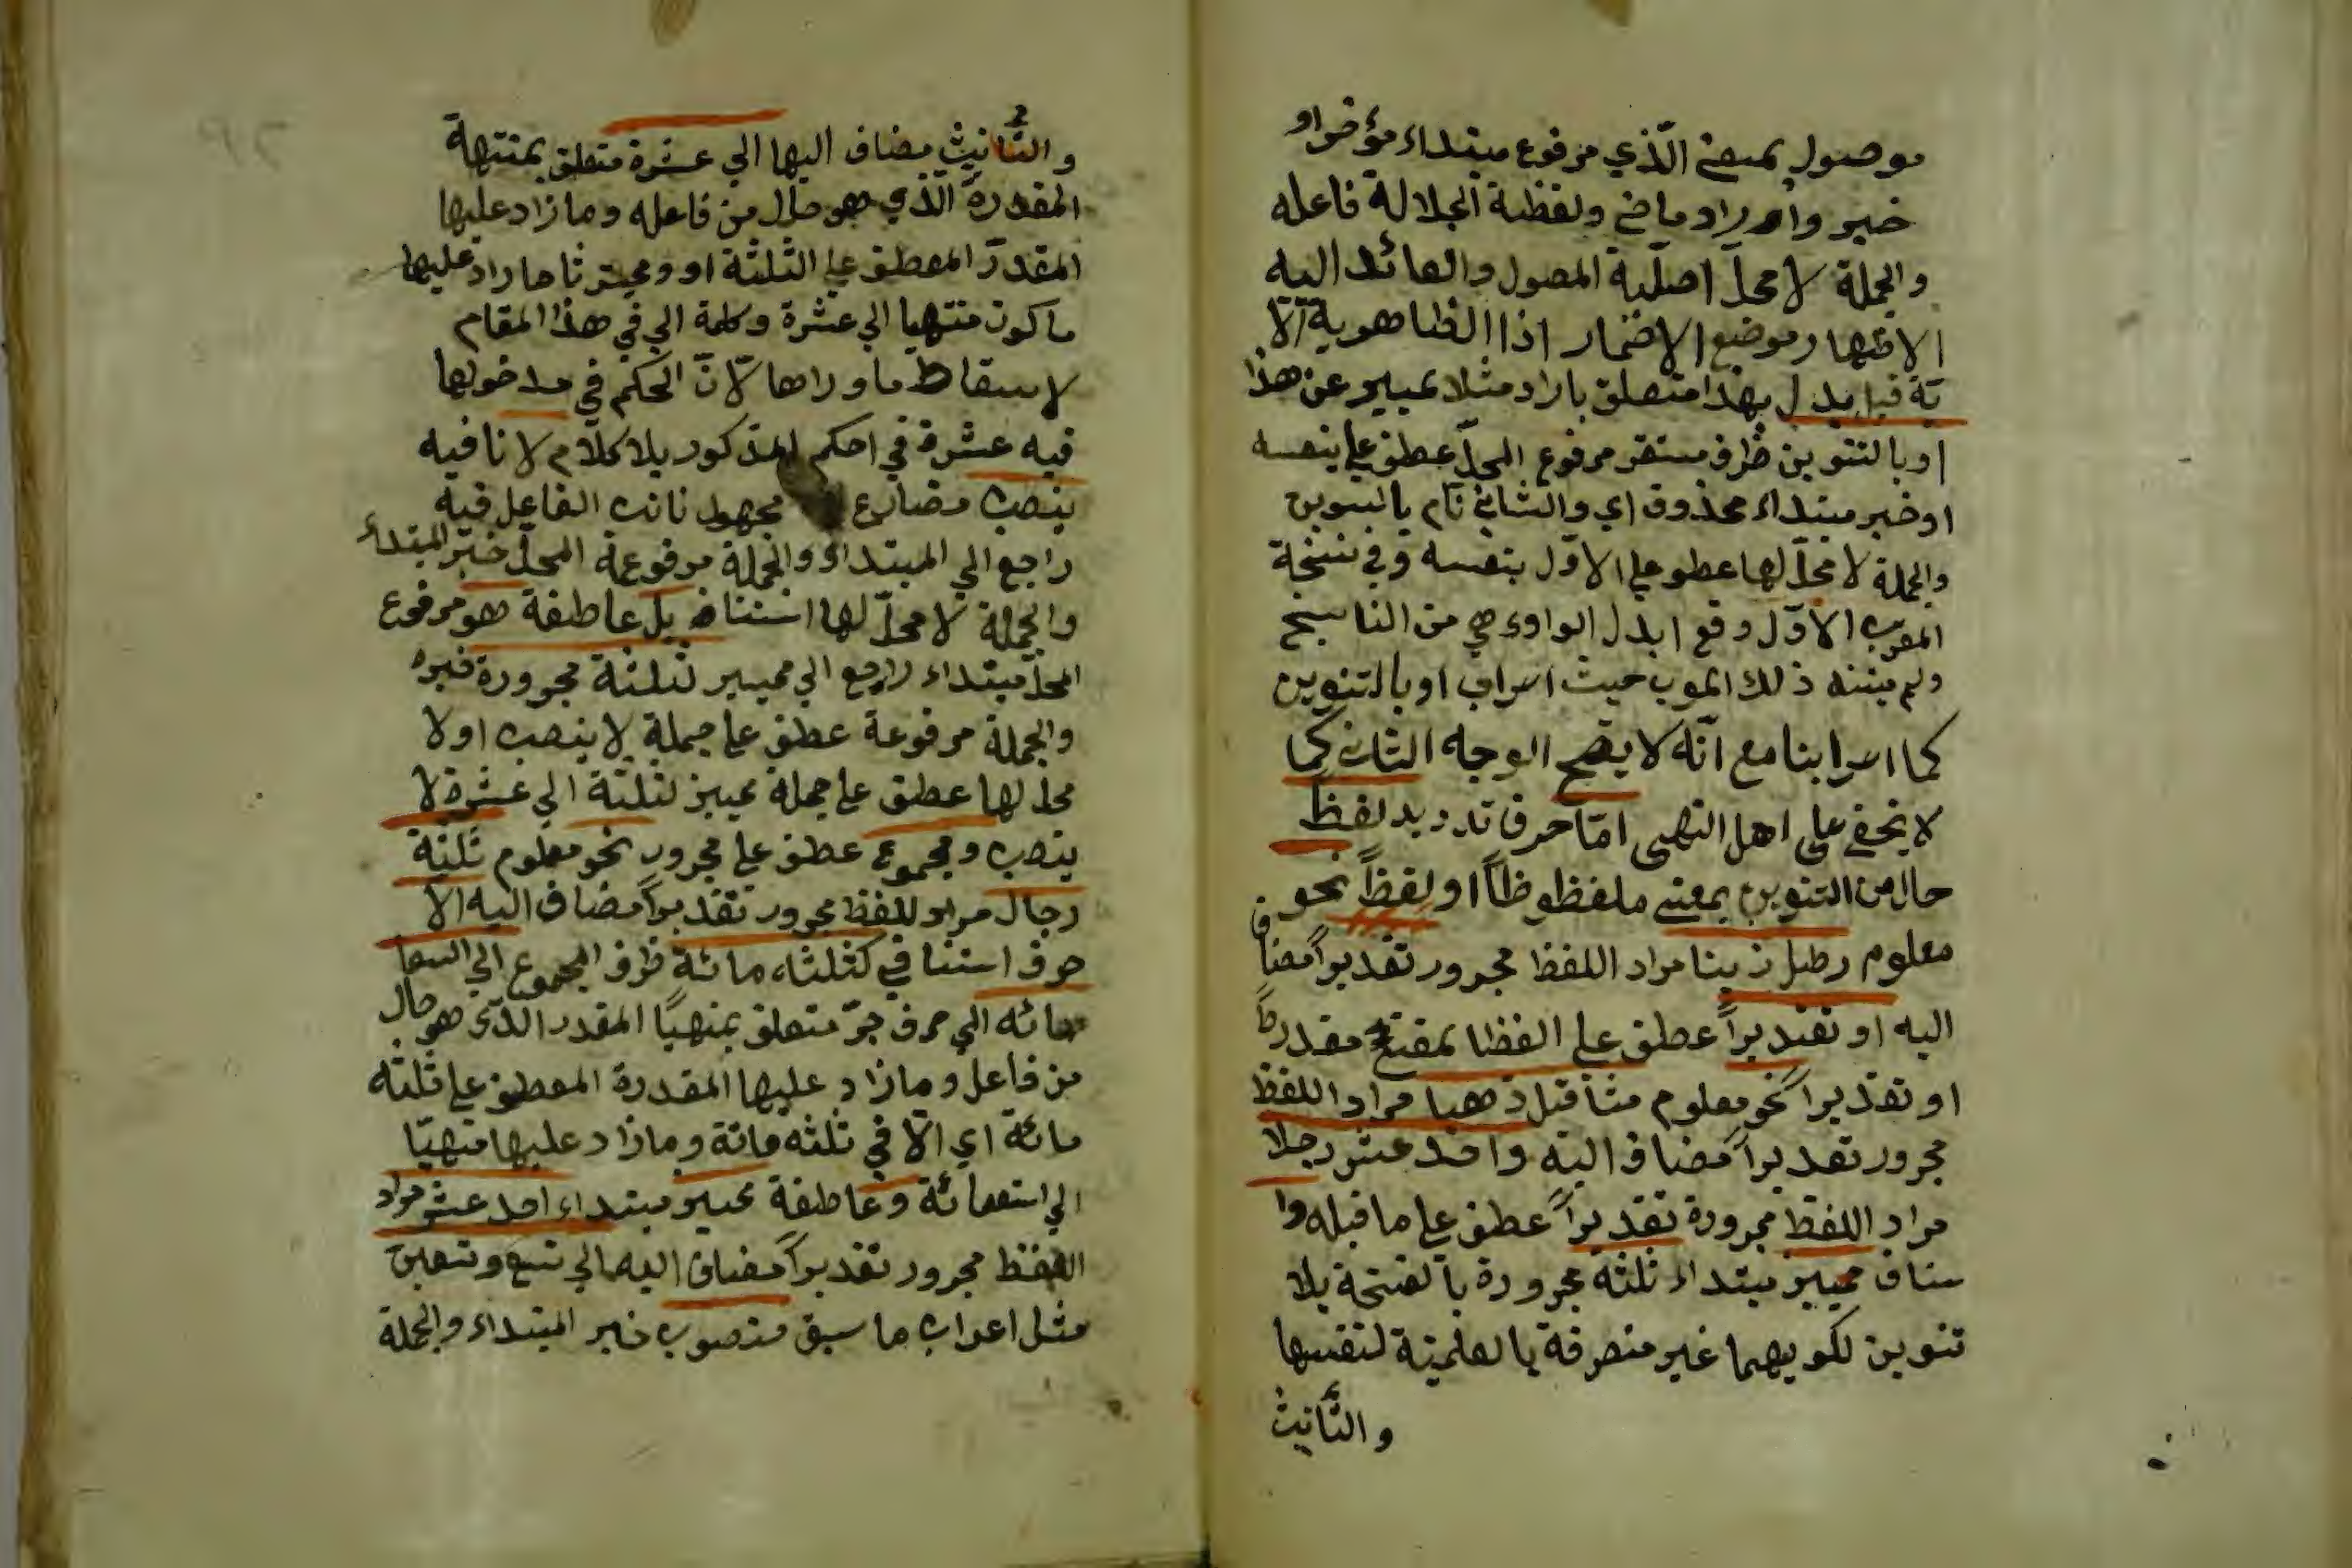 موصول بمعنى الّذي مرفوع مبتداء مؤخر او
خبر وارراد ماض ولفظة الجلالة فاعله
والجملة لا محلّ اصلّية المصول والعائد اليه
الاضمار اذا
بهذا متعلق باراد مثلا عن هذا
او بالتنوين ظرف مستقر مرفوع المحلّ عطف على بنفسه
او خبر مبتداء محذوف اي والثاني تام بالتنوين
والجملة لا محلّ لها عطف على الاوّل بنفسه وفي نسخة
المعرب الاوّل وقع ابدل الواو وهي من الناسخ
ولم ذلك المعرب حيث او بالتنوين
كما مع انّه لا يصّح الوجه الثاني كما
لا يخفى على اهل النهى امّا حرف ترديد لفظ
حال من التنوين بمعنى ملفظوظاً او لفظاً نحو
معلوم رطل زيتا مراد اللفظ مجرور تقديراً مضاف
اليه او تقديراً عطف على الفظا بمعنى مقدراً
او تقديراً نحو معلوم مثاقيل ذهبا مراد اللفظ
مجرور تقديراً مضاف اليه واحد عشر رجلا
مراد اللفظ مجرورة تقديراً عطف على ما قبله وا
ستناف مميز مبتداء ثلثة مجرورة بالفتحة بلا
تنوين لكونهما غير منصرفة بالعلمية لنفسها
والتّأنيث
والتّأنيث مضاف اليها الي عشرة متعلق بمنتهية
المقدرة الّذي هو حال من فاعله وما زاد عليها
المقدرّ المعطف على الثلثة او ومميز ثا ما زاد عليها
ما كون منتهيا الي عشرة وكلمة الي في هذا المقام
لاسقاط ما وراها لانّ الحكم في مدخولها
فيه عشرة في احكم المذكور بلا كلام لا نافيه
ينصب مضارع مجهول نائب الفاعل فيه
راجع الي المبتداء والجملة مرفوعة المحلّ خبر المبتداء
والجملة لا محلّ لها استناف بل عاطفة هو مرفوع
المحلّ مبتداء راجع الي مميز لثلثة مجرورة خبره
والجملة مرفوعة عطف على جملة لا ينصب او لا
محل لها عطف على جملة مميز لثلثة الي عشرة لا
ينصب ومجموع عطف على مجرور نحو معلوم ثلثة
رجال مراد للفظ مجرور تقديراً مضاف اليه الا
حرف استنا في كثلثاء مائة ظرف المجموع الي التسعا
مائه الي حرف جرّ متعلق بمنهيًا المقدر الذّى هو حال
من فاعل وما زاد عليها المقدرة المعطف على ثلثه
مائة اي الّا في ثلثه مائة وما زاد عليها منهيّا
الي استعمائة وعاطفة مميز مبتداء احد عشر مراد
الفظ مجرور تقديراً مضاف اليه الي تسع وتسعين
مثل اعراب ما سبق منصوب خبر المبتداء والجملة